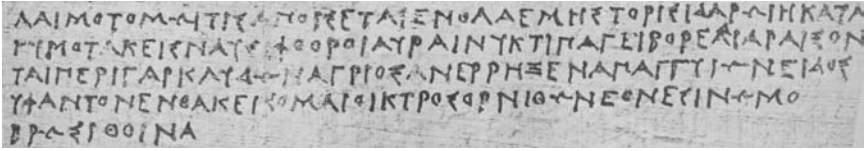 ΛΑΙΜΟΤΟΜΩΙΤΙΣΑΠΟΙΣΕΤΑΙΕΝΘΑΔΕΜΗΣΤΟΡΙΣΙΔΑΡΩΙΗΚΑΤΑ
ΚΥΜΟΤΑΚΕΙΣΝΑΥΣΙΦΘΟΡΟΙΑΥΡΑΙΝΥΚΤΙΠΑΓΕΙΒΟΡΕΑΙΔΡΑΙΣΟΝ
ΤΑΙΠΕΡΙΓΑΡΚΛΥΔΩΝΑΓΡΙΟΣΑΝΕΡΡΗΞΕΝΑΠΑΓΓΥΙΩΝΕΙΔΟΣ
ΥΦΑΝΤΟΝΕΝΘΑΚΕΙΣΟΜΑΙΟΙΚΤΡΟΣΟΡΝΙΘΩΝΕΘΝΕΣΙΝΩΜΟ
ΒΡΩΣΙΘΟΙΝΑ